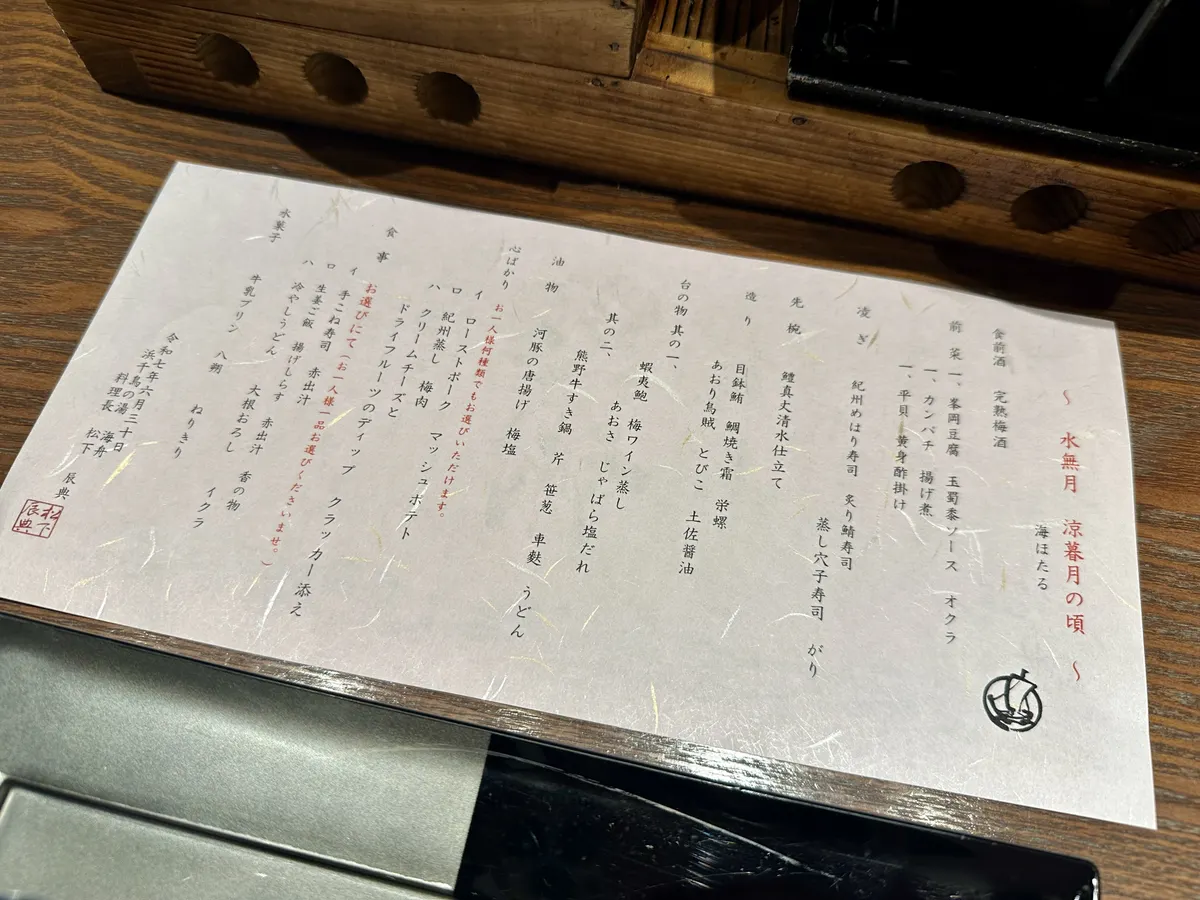 ～ 水無月 涼暮月の頃 ～
海ほたる
食前酒 完熟梅酒
前菜 一、峯岡豆腐 玉蜀黍ソース オクラ
一、カンパチ 揚げ煮
一、平貝 黄身酢掛け
凌ぎ 紀州めはり寿司 炙り鯖寿司
蒸し穴子寿司 がり
先椀 鱧真丈清水仕立て
造り 目鉢鮪 鯛焼き霜 栄螺
あおり烏賊 とびこ 土佐醤油
台の物 其の一、 蝦夷鮑 梅ワイン蒸し
あおさ じゃばら塩だれ
其の二、 熊野牛すき鍋 芹 笹葱 車麩 うどん
油物 河豚の唐揚げ 梅塩
心ばかり お一人様何種類でもお選びいただけます。
イ ローストポーク マッシュポテト
ロ 紀州蒸し 梅肉
ハ クリームチーズと
ドライフルーツのディップ クラッカー添え
食事 お選びにて(お一人様一品お選びくださいませ。)
イ 手こね寿司 赤出汁 香の物
ロ 生姜ご飯 揚げしらす 大根おろし イクラ
赤出汁 香の物
ハ 冷やしうどん
水菓子 牛乳プリン 八朔 ねりきり
令和七年六月三十日
浜千鳥の湯 海舟
料理長 松下 辰典
松下辰典